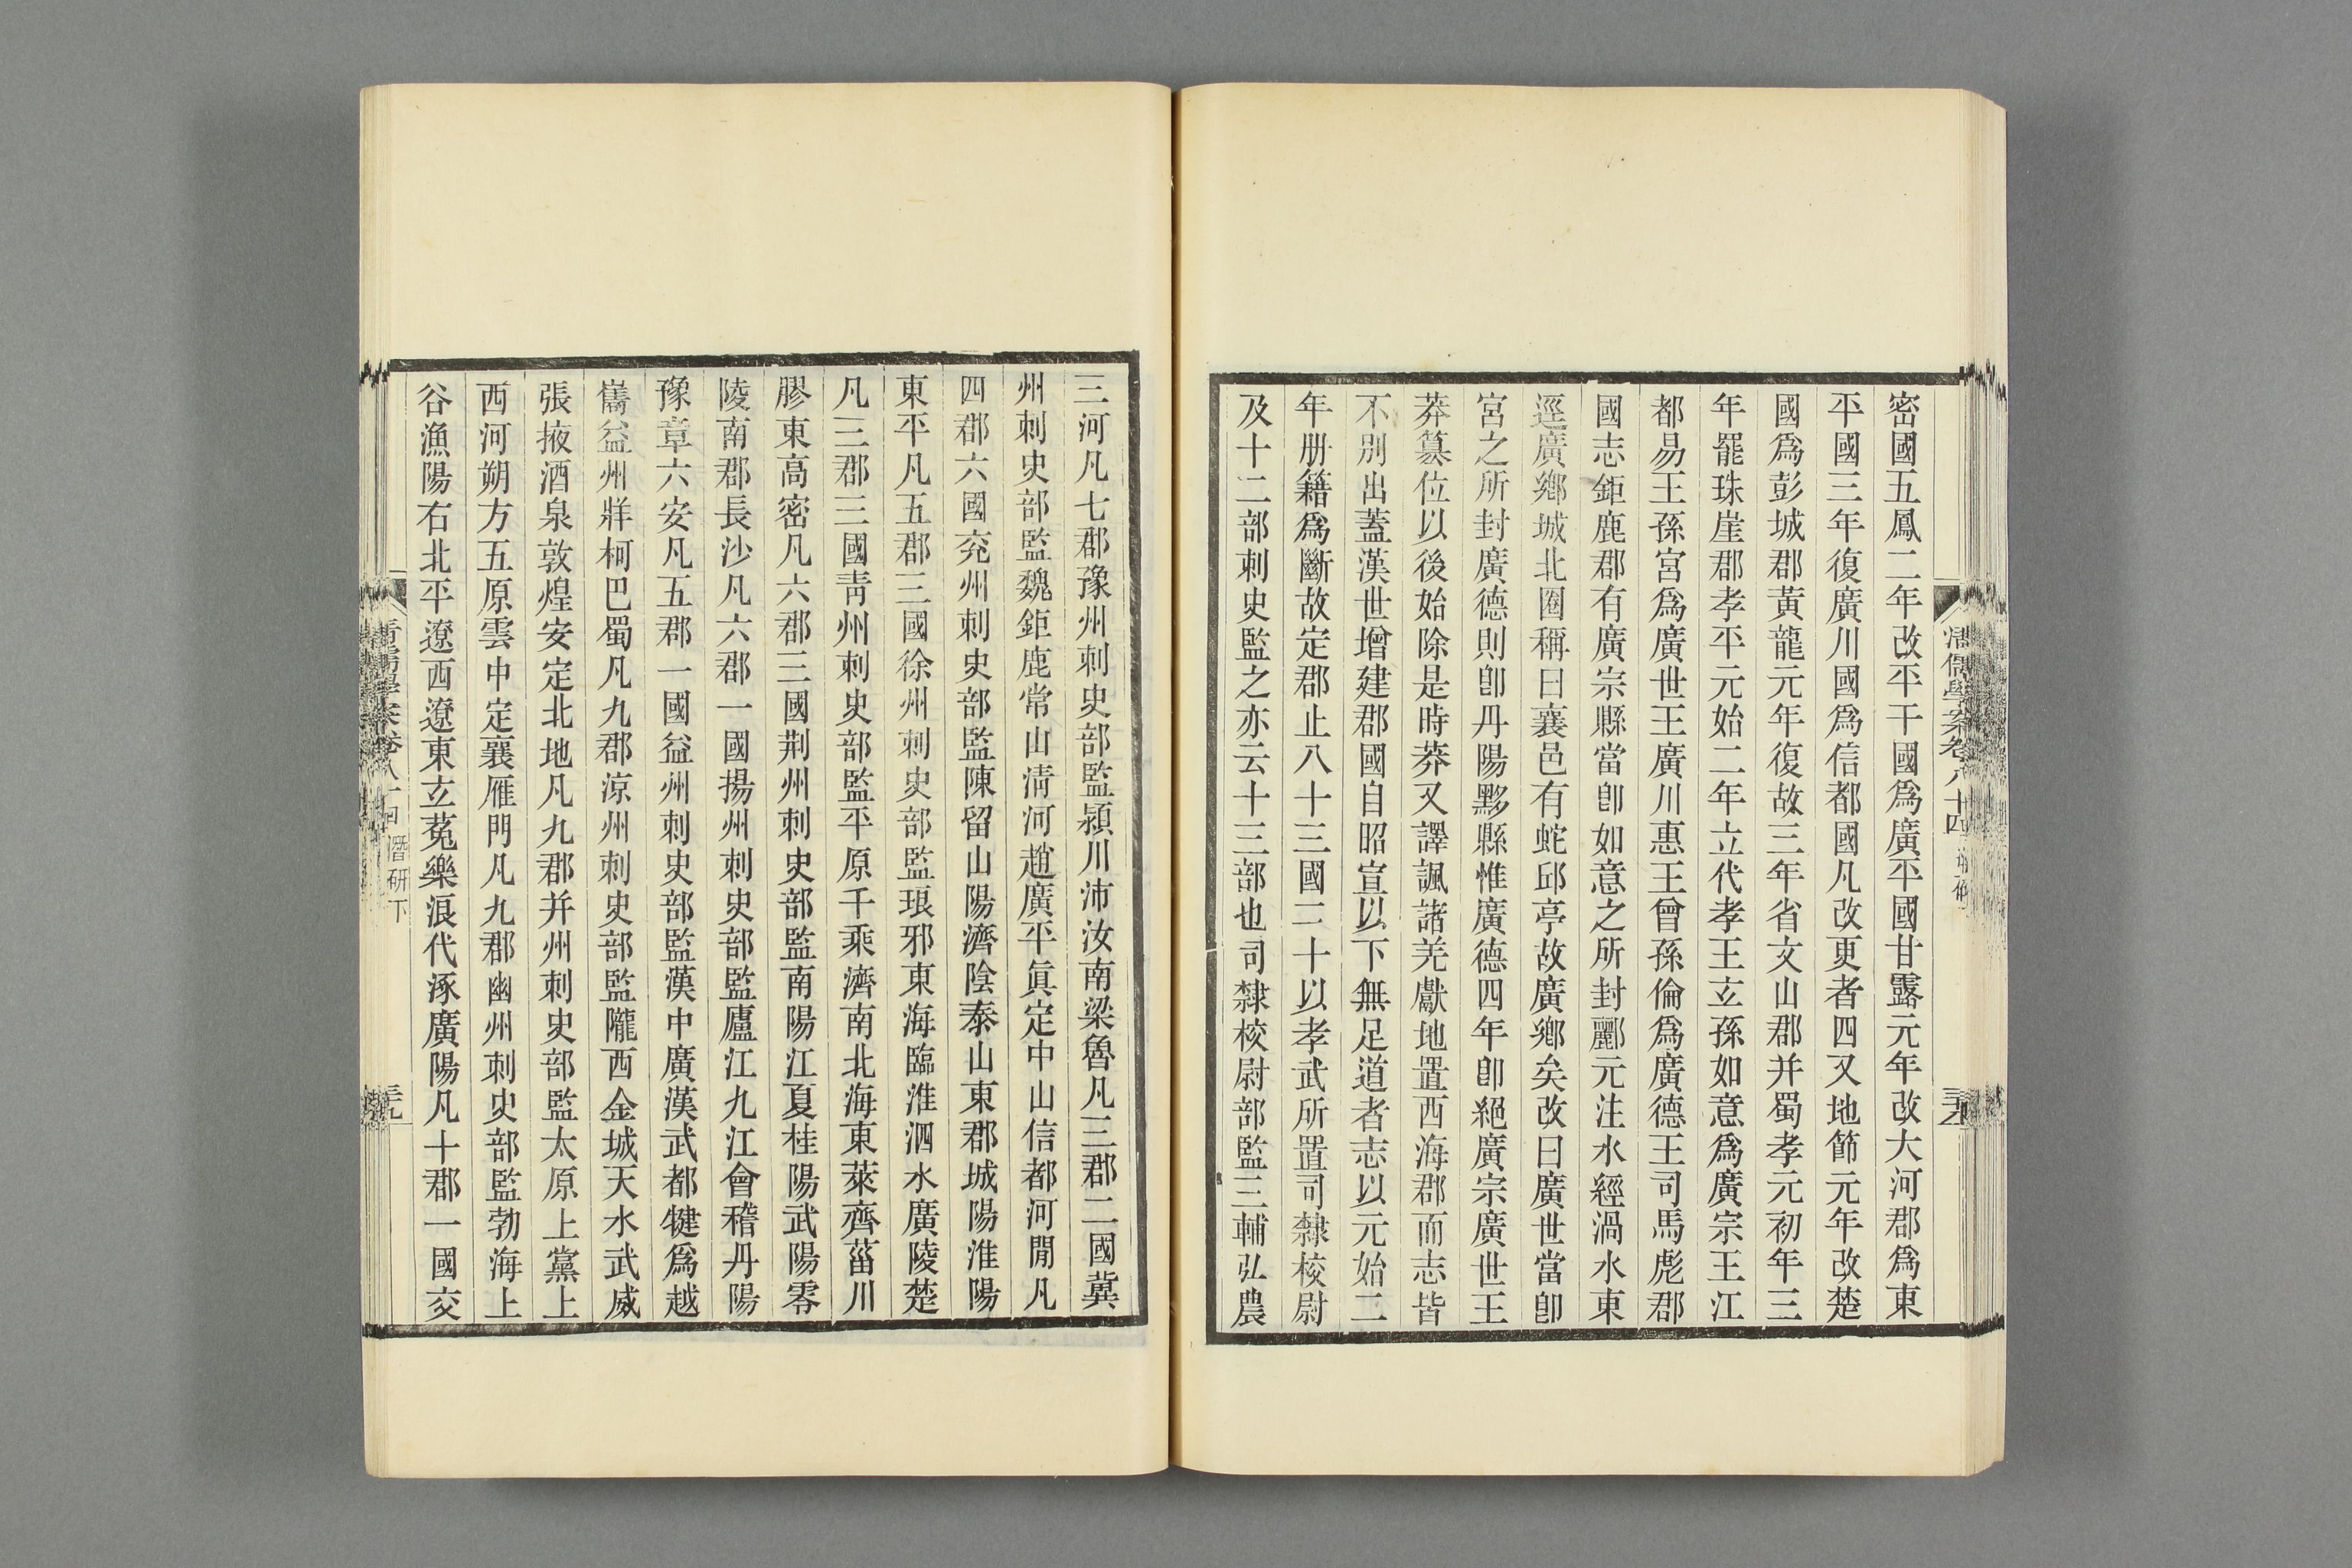 密國五鳳二年改平干國爲廣平國甘露元年改大河郡爲東
平國三年復廣川國爲信都國凡改更者四又地節元年改楚
國爲彭城郡黃龍元年復故三年省文山郡并蜀孝元初年三
年罷珠崖郡孝平元始二年立代孝王玄孫如意爲廣宗王江
都易王孫宮爲廣世王廣川惠王曾孫倫爲廣德王司馬彪郡
國志鉅鹿郡有廣宗縣當卽如意之所封酈元注水經渦水東
逕廣鄉城北圈稱曰襄邑有蛇邱亭故廣鄉矣改曰廣世當卽
宮之所封廣德則卽丹陽黟縣惟廣德四年卽絕廣宗廣世王
莽篡位以後始除是時莽又譯諷諸羌獻地置西海郡而志皆
不別出蓋漢世增建郡國自昭宣以下無足道者志以元始二
年册籍爲斷故定郡止八十三國二十以孝武所置司隸校尉
及十二部刺史監之亦云十三部也司隸校尉部監三輔弘農
清儒學案卷八十四
三河凡七郡豫州刺史部監潁川沛汝南梁魯凡三郡二國冀
州刺史部監魏鉅鹿常山清河趙廣平眞定中山信都河閒凡
四郡六國兖州刺史部監陳留山陽濟陰泰山東郡城陽淮陽
東平凡五郡三國徐州刺史部監琅邪東海臨淮泗水廣陵楚
凡三郡三國青州刺史部監平原千乘濟南北海東萊齊菑川
膠東高密凡六郡三國荆州刺史部監南陽江夏桂陽武陽零
陵南郡長沙凡六郡一國揚州刺史部監廬江九江會稽丹陽
豫章六安凡五郡一國益州刺史部監漢中廣漢武都犍爲越
巂益州牂柯巴蜀凡九郡涼州刺史部監隴西金城天水武威
張掖酒泉敦煌安定北地凡九郡并州刺史部監太原上黨上
西河朔方五原雲中定襄雁門凡九郡幽州刺史部監勃海上
谷漁陽右北平遼西遼東玄菟樂浪代涿廣陽凡十郡一國交
清儒學案卷八十四 潛研下 三九